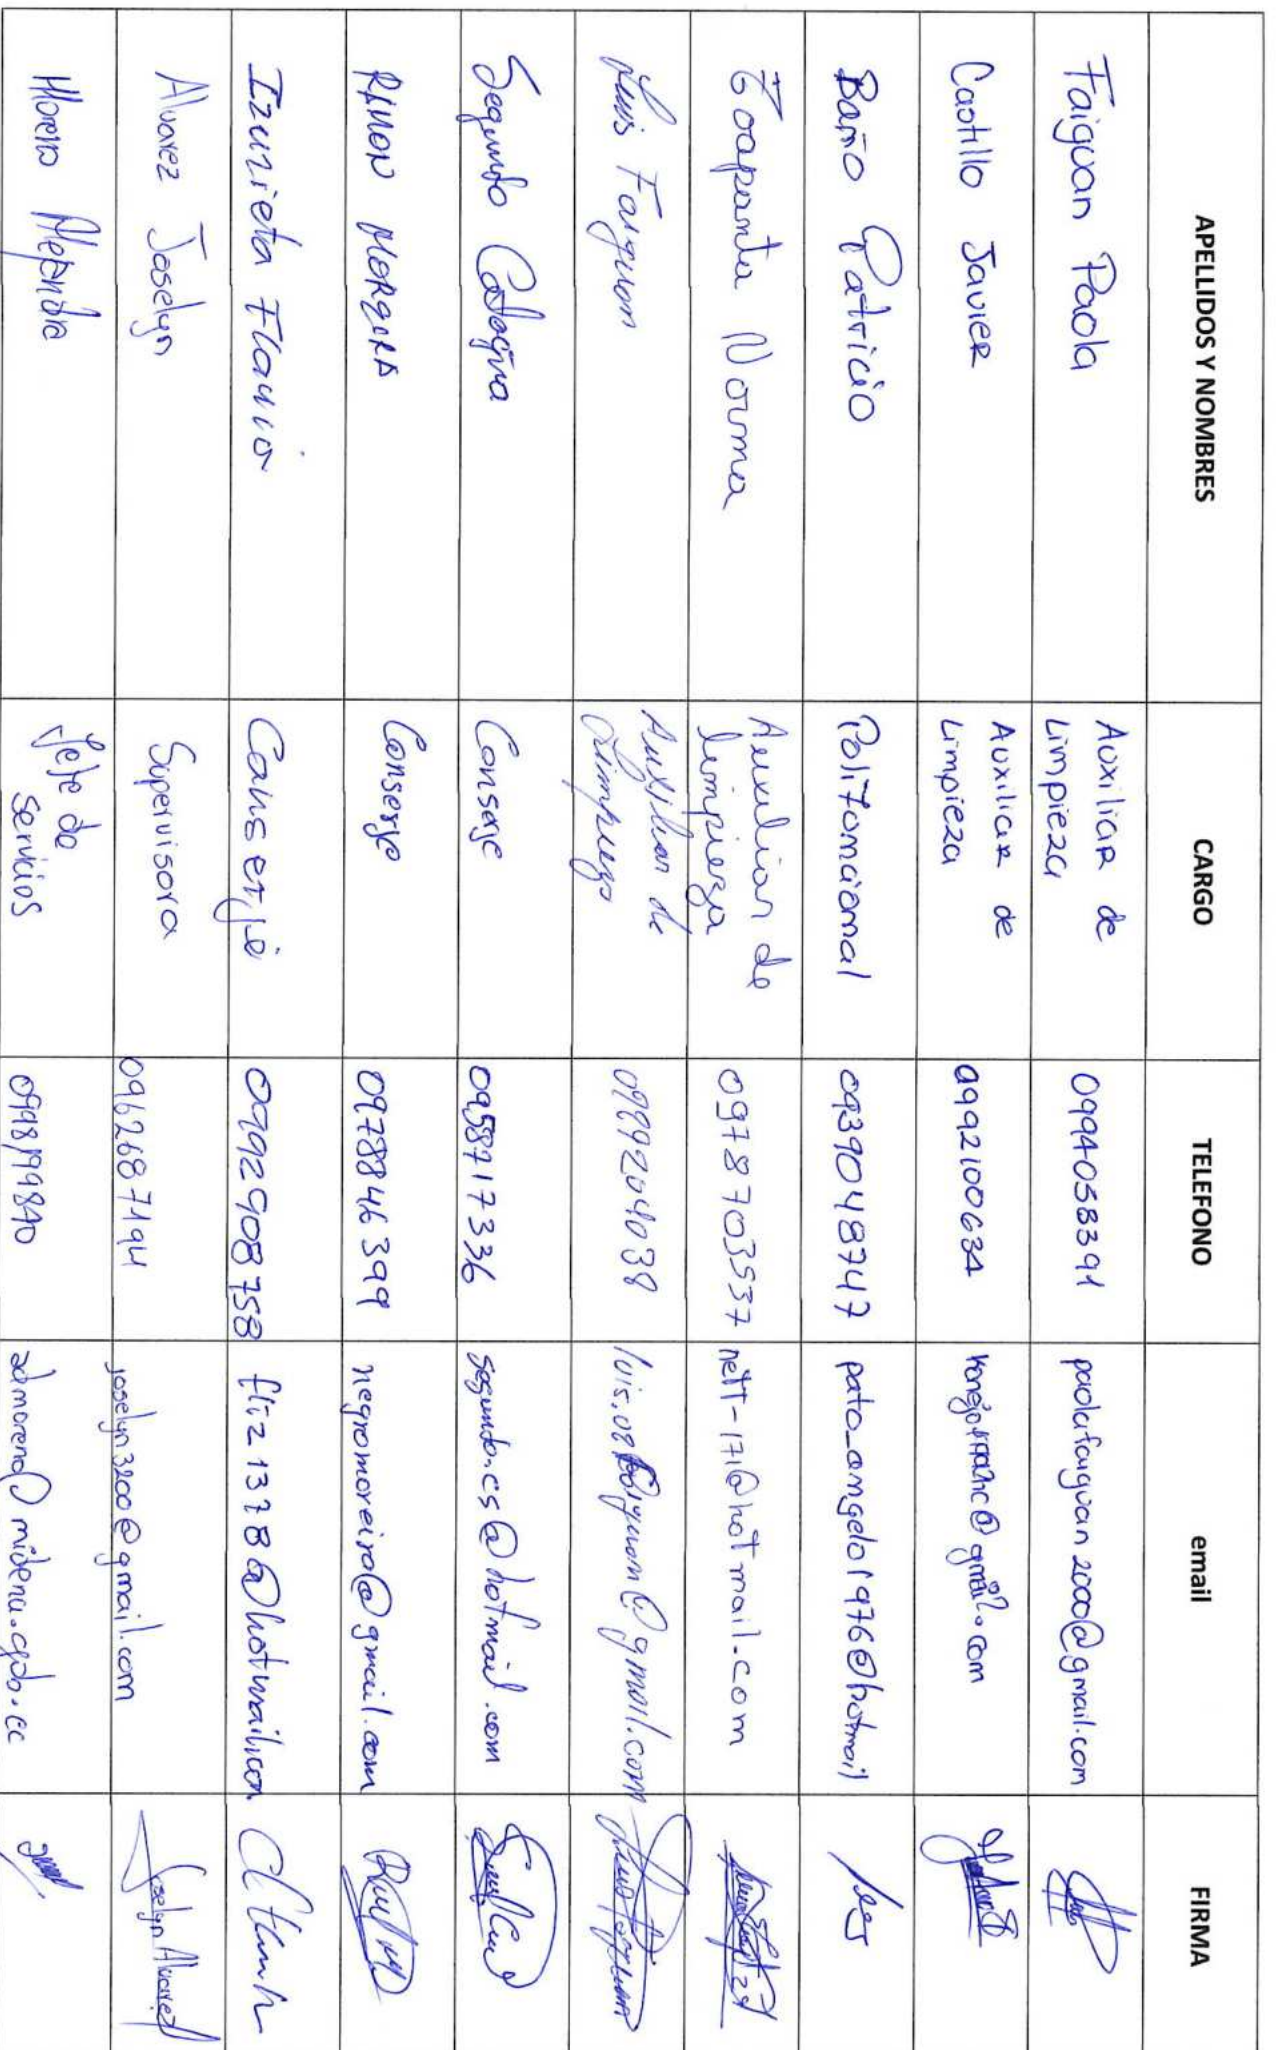 APELLIDOS Y NOMBRES CARGO TELEFONO email FIRMA
Faiguan Paola Auxiliar de Limpieza 0994058391 paolafaiguan2000@gmail.com
Castillo Javier Auxiliar de Limpieza 0992100634 @gmail.com
Baño Patricio Polifuncional 0939048747 pato_angelo1976@hotmail
Toapanta Norma Auxiliar de limpieza 0978703537 nett-171@hotmail.com
Luis Faiguan Auxiliar de Limpieza 0989204038 @gmail.com
Segundo Conserje 0958717336 segundo.cs@hotmail.com
RAMON MOREIRA Conserje 0978846399 negromoreira@gmail.com
Izurieta Flavio Conserje 0992908758 fliz1378@hotmail.com
Alvarez Joselyn Supervisora 0962687194 joselyn3200@gmail.com Joselyn Alvarez
Moreno Alejandra Jefe de Servicios 0998199840 admoreno@midena.gob.ec